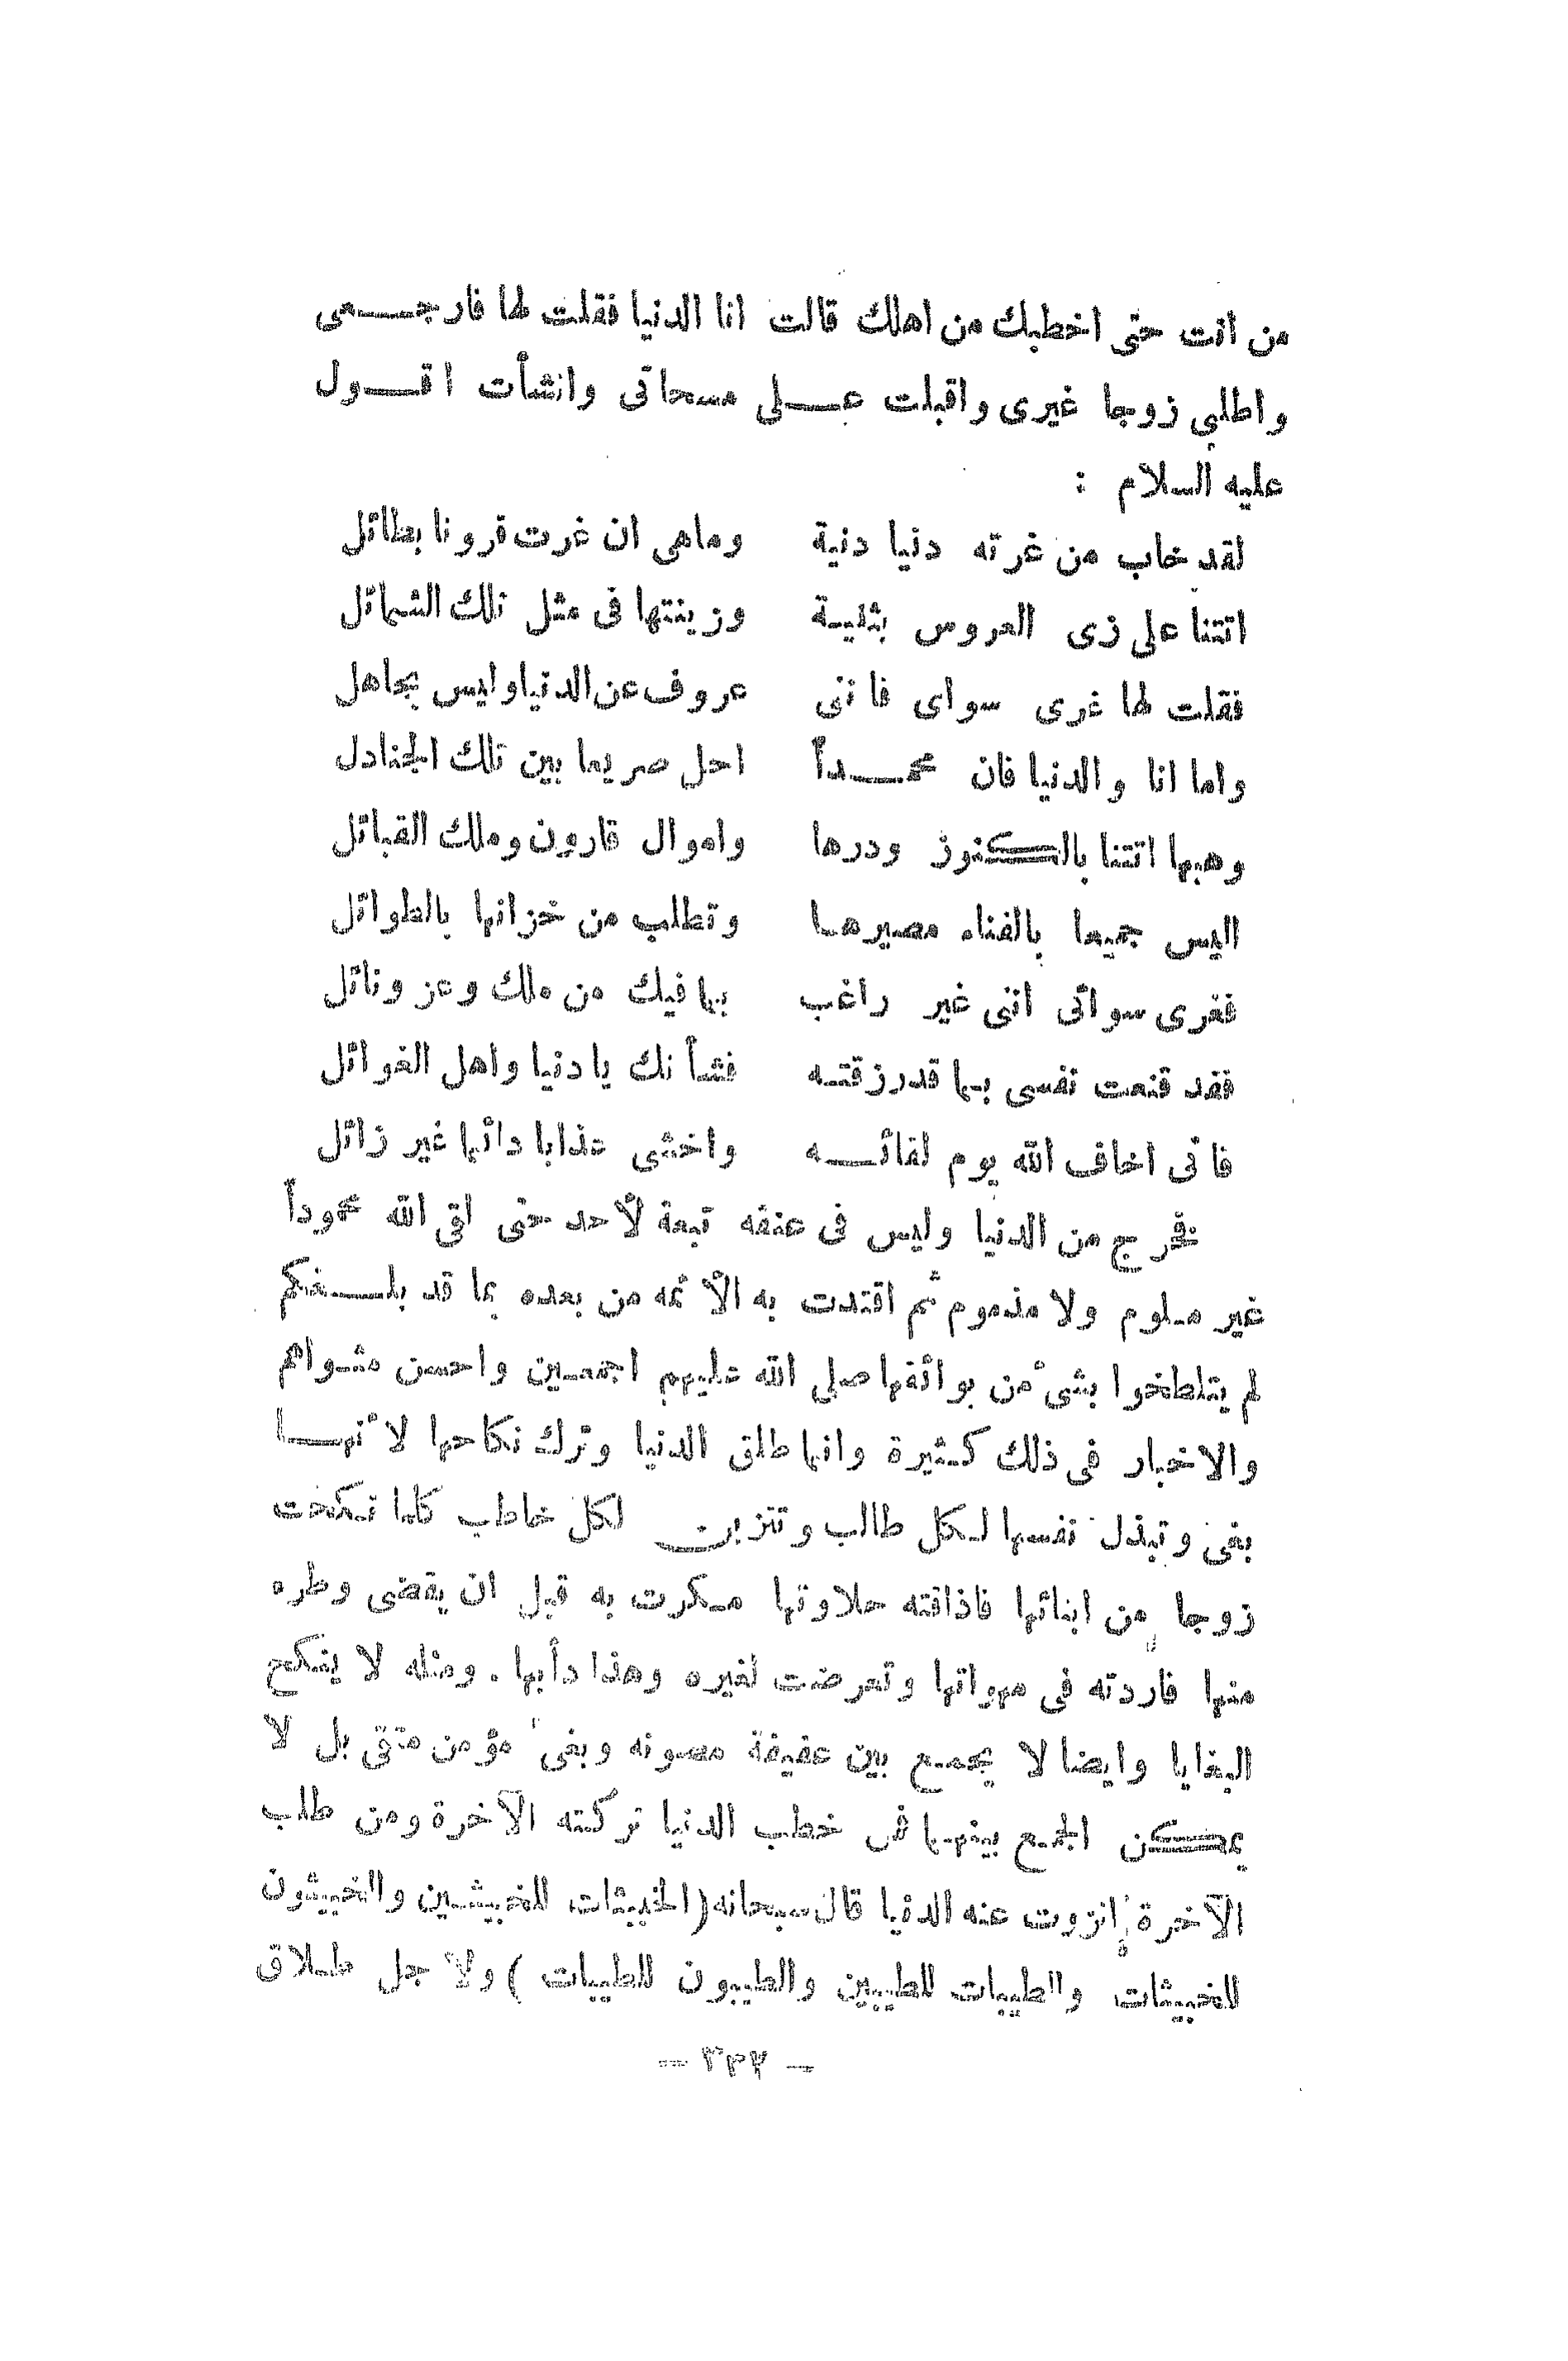 من انت حتى اخطبك من اهلك قالت انا الدنيا فقلت لها فارجعى
واطلبي زوجا غيرى واقبلت على مسحاتى وانشأت اقول
عليه السلام :
لقد خاب من غرته دنيا دنية وماهى ان غرت قرونا بطائل
اتتنا على زى العروس بثينة وزينتها فى مثل تلك الشمائل
فقلت لها غرى سواى فاننى عروف عن الدنيا وليس بجاهل
واما انا والدنيا فان محمداً احل صريعا بين تلك الجنادل
وهبها اتتنا بالكنوز ودرها واموال قارون وملك القبائل
اليس جميعا بالفناء مصيرها وتطلب من خزانها بالطوائل
فغرى سوائى اننى غير راغب بما فيك من ملك وعز ونائل
فقد قنعت نفسى بما قدرزقته فشأنك يا دنيا واهل الغوائل
فانى اخاف الله يوم لقائه واخشى عذابا دائما غير زائل
فخرج من الدنيا وليس فى عنقه تبعة لأحد حتى لقى الله محموداً
غير ملوم ولا مذموم ثم اقتدت به الأئمه من بعده بما قد بلغكم
لم يتلطخوا بشىء من بوائقها صلى الله عليهم اجمعين واحسن مثواهم
والاخبار فى ذلك كثيرة وانما طلق الدنيا وترك نكاحها لأنها
بغى وتبذل نفسها لكل طالب وتتزين لكل خاطب كلما نكحت
زوجا من ابنائها فاذاقته حلاوتها مكرت به قبل ان يقضى وطره
منها فاردته فى مهواتها وتعرضت لغيره وهذا دأبها . ومثله لا ينكح
البغايا وايضا لا يجمع بين عفيفة مصونه وبغى مؤمن متقى بل لا
يمكن الجمع بينهما فمن خطب الدنيا تركته الآخرة ومن طلب
الآخرة انزوت عنه الدنيا قال سبحانه (الخبيثات للخبيثين والخبيثون
للخبيثات والطيبات للطيبين والطيبون للطيبات ) ولاجل طلاق
— ٣٣٣ —